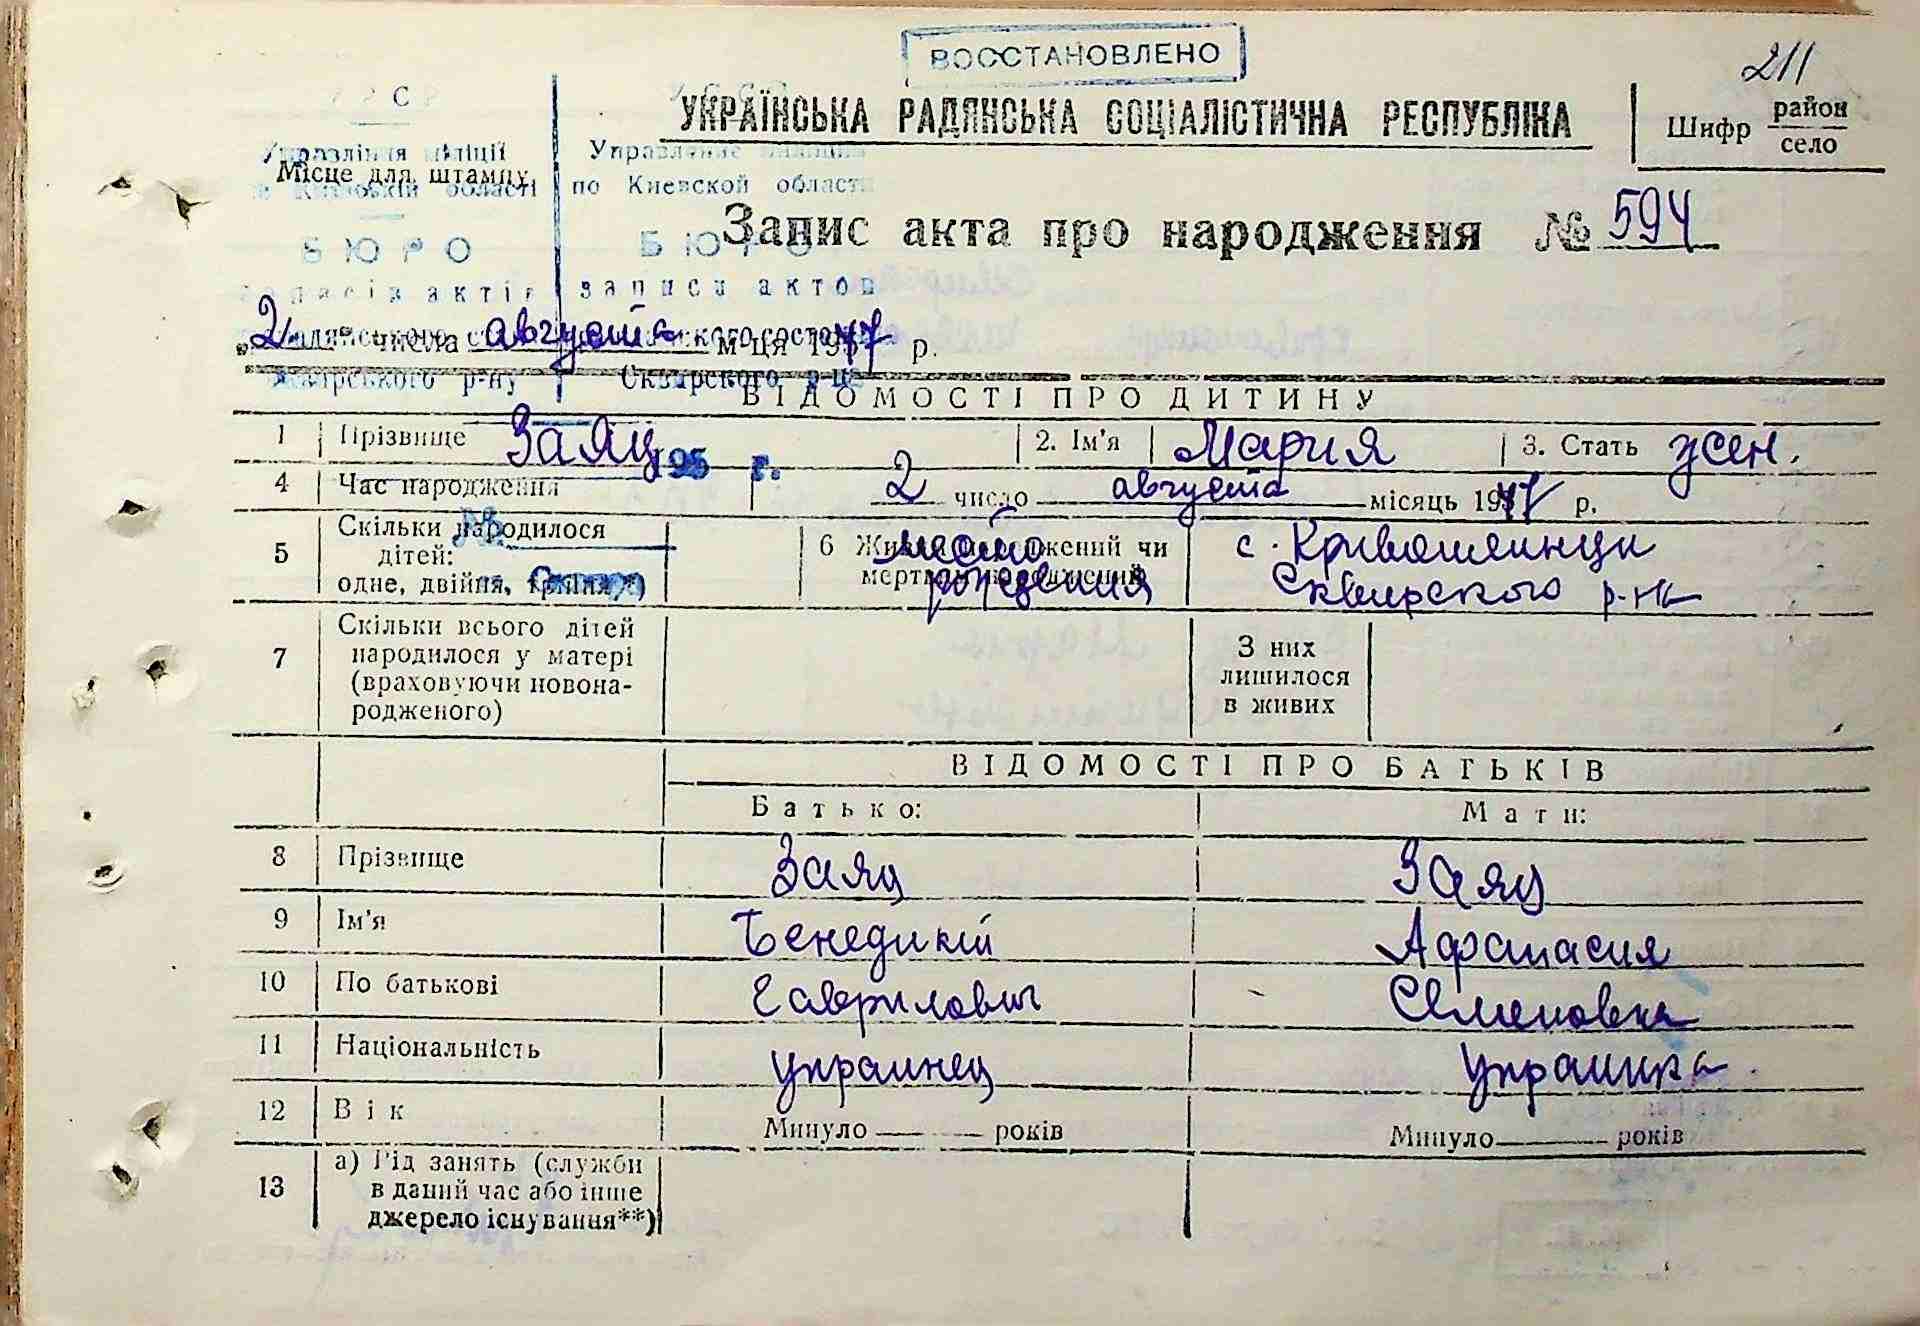 ВОССТАНОВЛЕНО
211
УКРАЇНСЬКА РАДЯНСЬКА СОЦІАЛІСТИЧНА РЕСПУБЛІКА
Шифр район село
Управління міліції Управление милиции
Місце для штампу
в Київській області по Киевской области
Запис акта про народження № 594
БЮРО БЮРО
записів актів записи актов
"2" числа августа м-ця 1947 р.
Сквирського р-ну Сквирского р-на
ВІДОМОСТІ ПРО ДИТИНУ
1 Прізвище Заяц 2. Ім'я Мария 3. Стать жен.
195 г.
4 Час народження 2 число августа місяць 1947 р.
5 Скільки народилося дітей: одне, двійня, трійня*)
№
6 Живим народжений чи мертвим народжений
место рождения
с. Кривошеинцы
Сквирского р-на
7 Скільки всього дітей народилося у матері (враховуючи новонародженого)
З них лишилося в живих
ВІДОМОСТІ ПРО БАТЬКІВ
Батько: Мати:
8 Прізвище Заяц Заяц
9 Ім'я Бенедикт Афанасия
10 По батькові Гаврилович Семеновна
11 Національність украинец украинка
12 Вік Минуло років Минуло років
13 а) Рід занять (служби
в даний час або інше
джерело існування**)